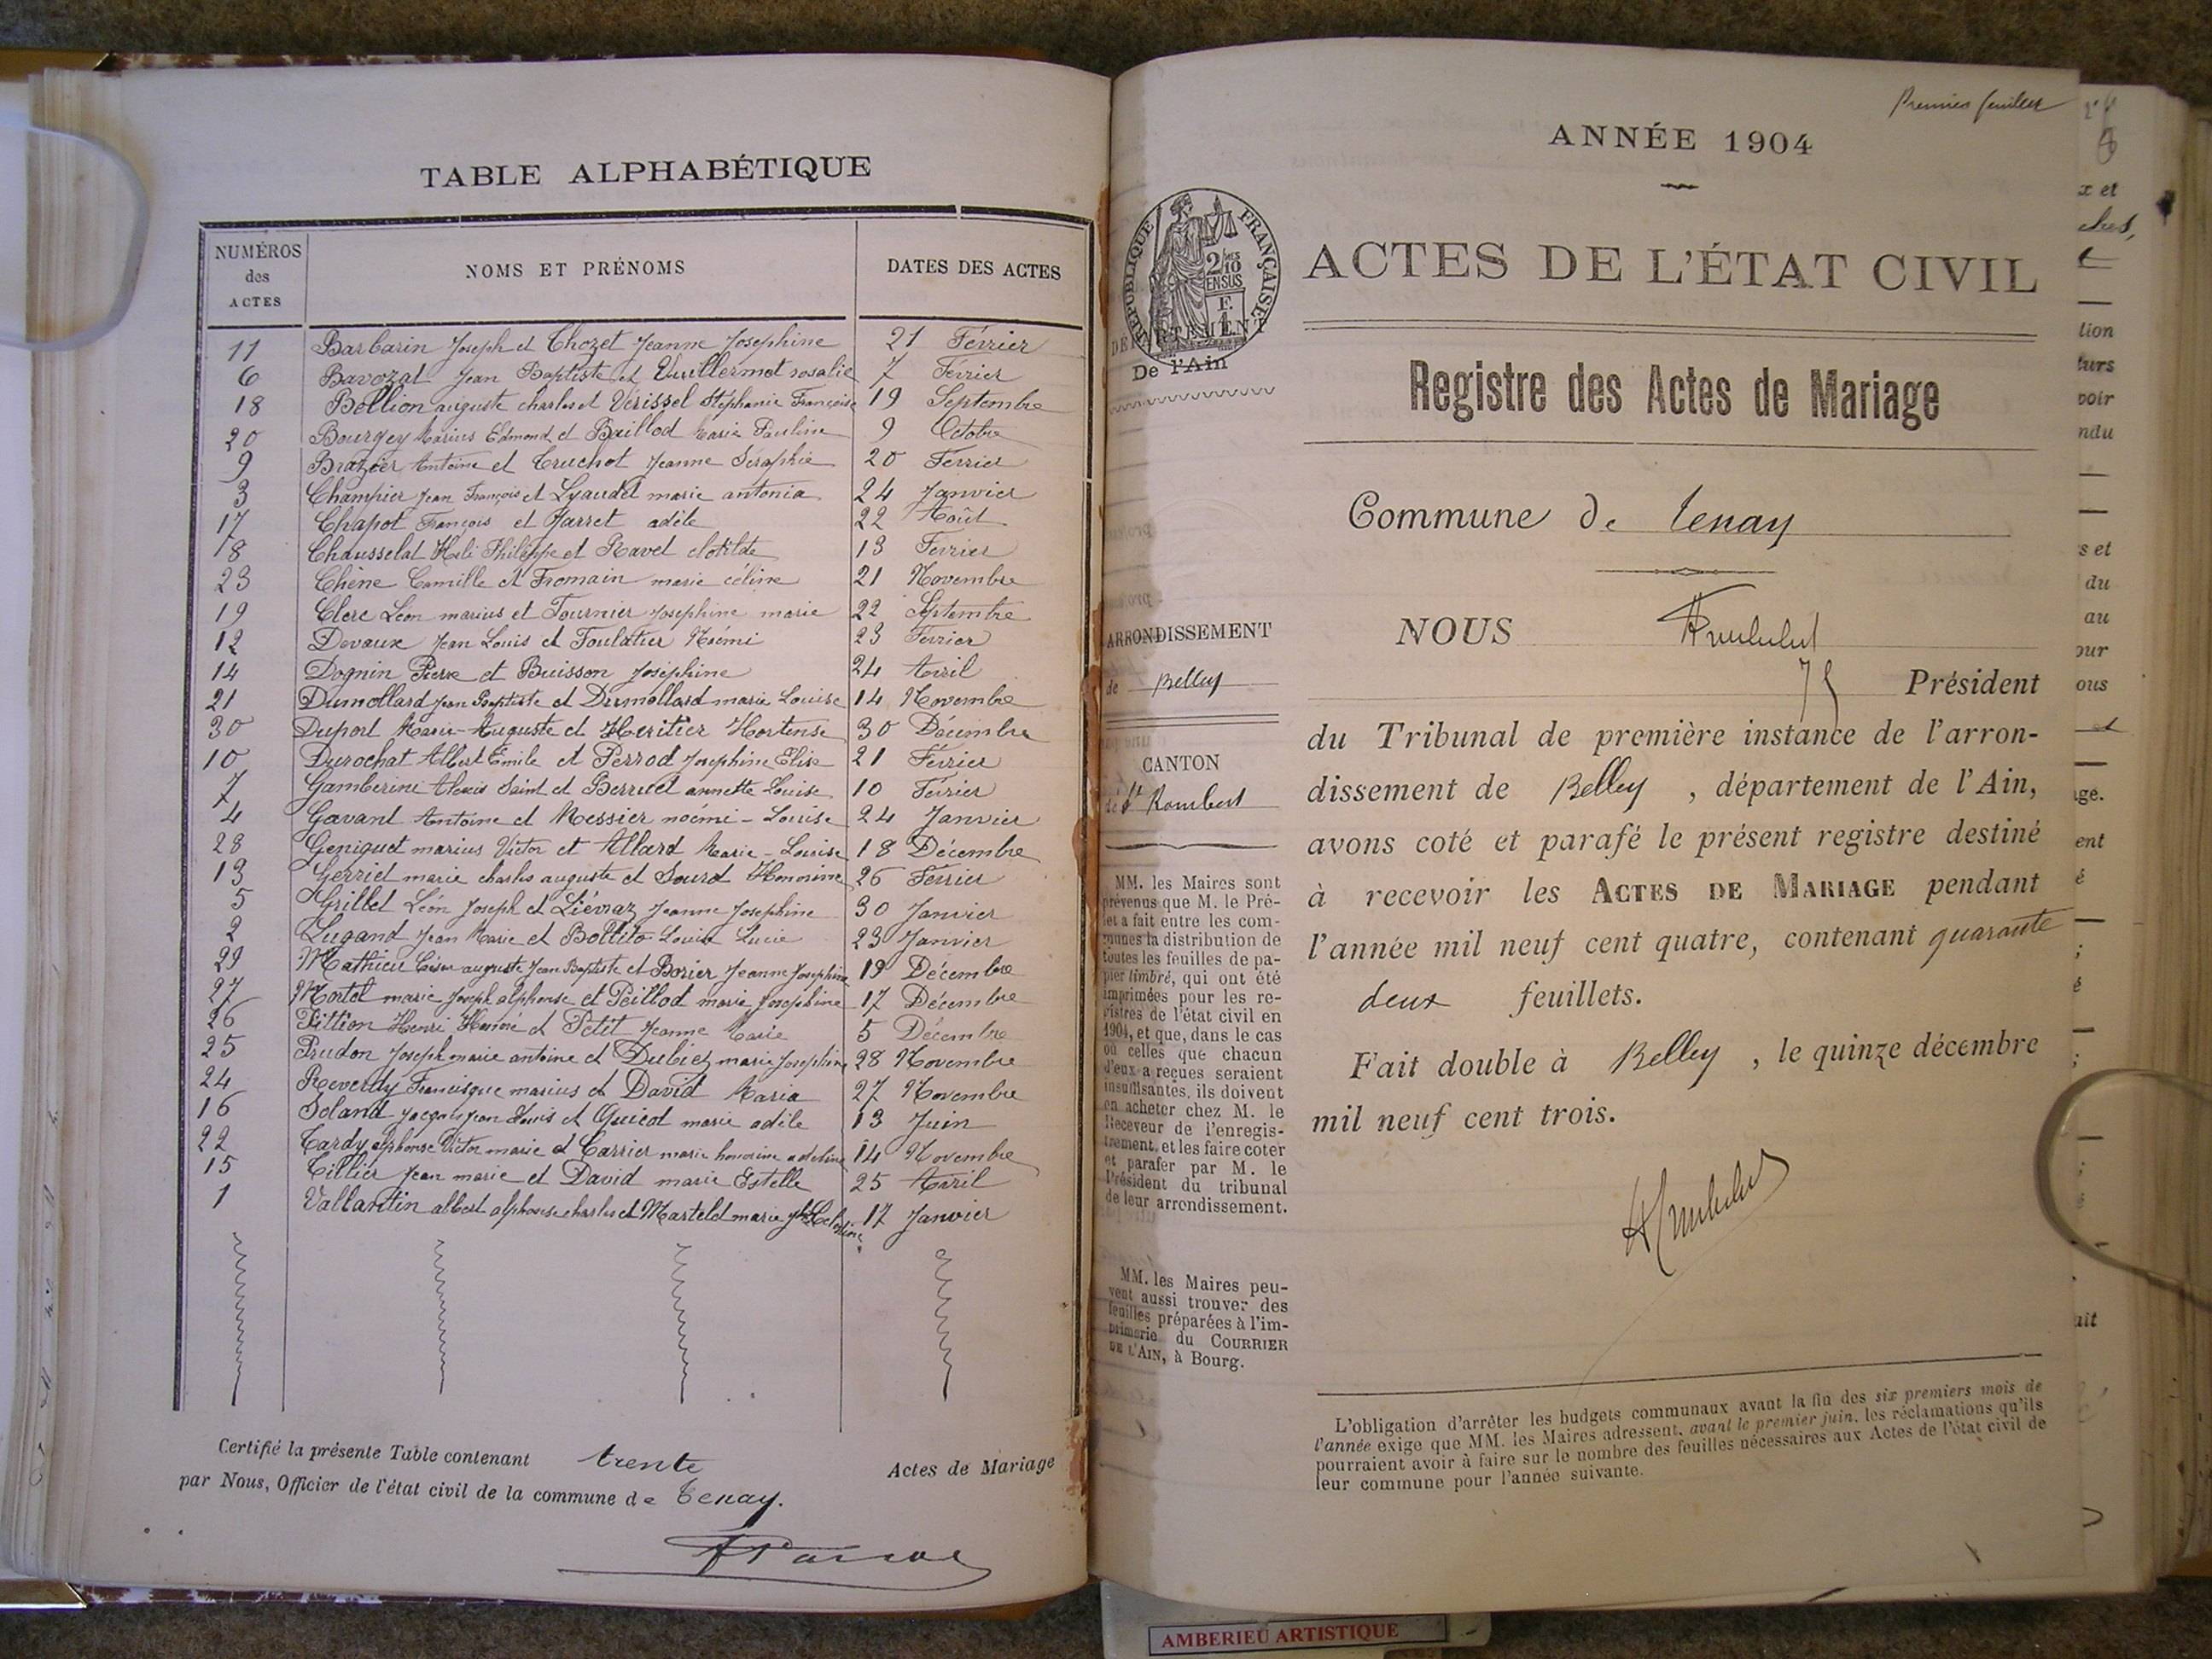 TABLE ALPHABÉTIQUE
NUMÉROS des ACTES NOMS ET PRÉNOMS DATES DES ACTES
11 Barbarin Joseph et Chozet Jeanne Josephine 21 Février
6 Bavozat Jean Baptiste et Vuillermot rosalie 7 Février
18 Bellion auguste charles et Vérissel Stéphanie Françoise 19 Septembre
20 Bourgey Marius Edmond et Baillod Marie Pauline 9 Octobre
9 Brazier Antoine et Cruchot Jeanne Séraphie 20 Février
3 Champier Jean François et Lyaudet marie antonia 24 Janvier
17 Chapot François et Jarret adèle 22 Août
8 Chausselat Philippe et Ravet clotilde 13 Février
23 Chêne Camille et Fromain marie céline 21 Novembre
19 Clerc Léon marius et Fournier Josephine marie 22 Septembre
12 Devaux Jean Louis et Foulatier Noémi 23 Février
14 Dognin Pierre et Buisson Joséphine 24 Avril
21 Dumollard Jean Baptiste et Dumollard marie Louise 14 Novembre
30 Duport Marie-Auguste et Heritier Hortense 30 Décembre
10 Durochat Albert Émile et Perrod Josephine Elise 21 Février
7 Gamberini Alexis Saint et Berruet annette Louise 10 Février
4 Gavant Antoine et Messier noémi-Louise 24 Janvier
28 Geniquet marius Victor et Allard Marie-Louise 18 Décembre
13 Gerriet marie charles auguste et Sourd Honorine 26 Février
5 Grillet Léon Joseph et Liévraz Jeanne Josephine 30 Janvier
2 Lugand Jean Marie et Bottito Louise Lucie 23 Janvier
29 Mathieu César auguste Jean Baptiste et Borier Jeanne Josephine 19 Décembre
27 Mortel marie Joseph alphonse et Peillod marie Josephine 17 Décembre
26 Pittion Henri Honoré et Petit Jeanne Marie 5 Décembre
25 Prudon Joseph marie antoine et Dubiez marie Josephine 28 Novembre
24 Reverdy Francisque marius et David Maria 27 Novembre
16 Soland Jacques Jean Louis et Guicot marie adèle 13 Juin
22 Tardy alphonse Victor marie et Carrier marie honorine adeline 14 Novembre
15 Tillier Jean marie et David marie Estelle 25 Avril
1 Vallantin albert alphonse charles et Martelet marie 17 Janvier
Certifié la présente Table contenant trente Actes de Mariage
par Nous, Officier de l'état civil de la commune de Tenay.
Premier feuillet
ANNÉE 1904
RÉPUBLIQUE FRANÇAISE
2/10 EN SUS
DÉPARTEMENT
De l'Ain
ACTES DE L'ÉTAT CIVIL
Registre des Actes de Mariage
Commune de Tenay
ARRONDISSEMENT
de Belley
CANTON
de St Rambert
MM. les Maires sont
prévenus que M. le Pré-
fet a fait entre les com-
munes la distribution de
toutes les feuilles de pa-
pier timbré, qui ont été
imprimées pour les re-
gistres de l'état civil en
1904, et que, dans le cas
où celles que chacun
d'eux a reçues seraient
insuffisantes, ils doivent
en acheter chez M. le
Receveur de l'enregis-
trement, et les faire coter
et parafer par M. le
Président du tribunal
de leur arrondissement.
MM. les Maires peu-
vent aussi trouver des
feuilles préparées à l'im-
primerie du COURRIER
DE L'AIN, à Bourg.
NOUS
Président
du Tribunal de première instance de l'arron-
dissement de Belley, département de l'Ain,
avons coté et parafé le présent registre destiné
à recevoir les ACTES DE MARIAGE pendant
l'année mil neuf cent quatre, contenant quarante
deux feuillets.
Fait double à Belley, le quinze décembre
mil neuf cent trois.
L'obligation d'arrêter les budgets communaux avant la fin des six premiers mois de
l'année exige que MM. les Maires adressent, avant le premier juin, les réclamations qu'ils
pourraient avoir à faire sur le nombre des feuilles nécessaires aux Actes de l'état civil de
leur commune pour l'année suivante.
x et
lion
turs
voir
ndu
s et
du
au
our
ous
age.
ent
é
;
é
;
;
ait
AMBERIEU ARTISTIQUE